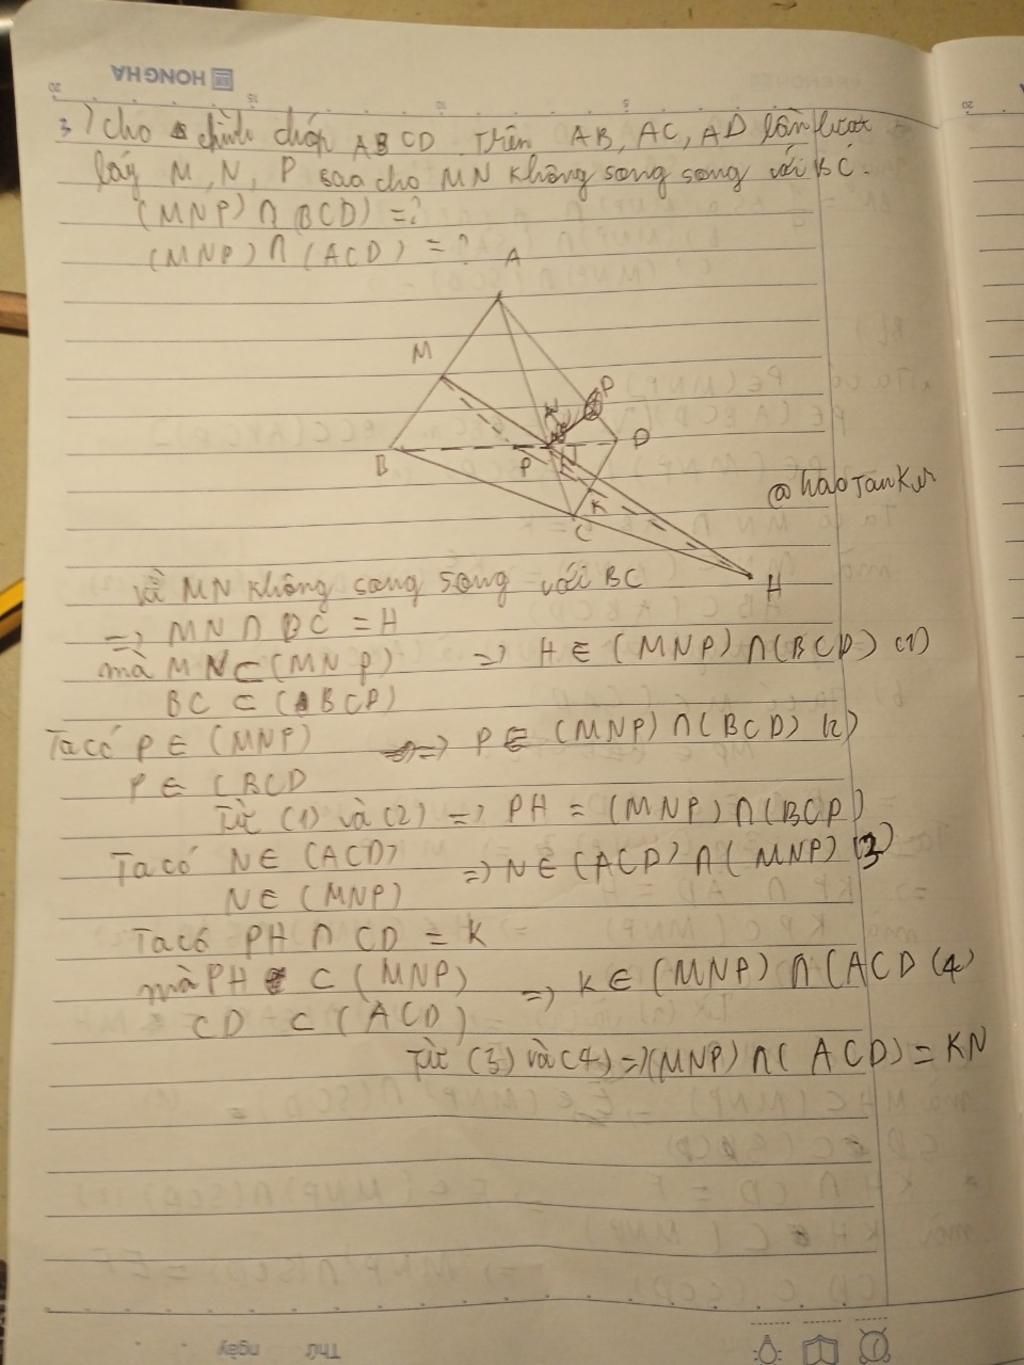 HONG HA
3) cho hình chóp ABCD. Trên AB, AC, AD lần lượt
lấy M, N, P sao cho MN không song song với BC.
(MNP) ∩ (BCD) = ?
(MNP) ∩ (ACD) = ?
A
M
P
N
B
D
P
K
C
H
@haoTanKur
vì MN không song song với BC
=> MN ∩ BC = H
mà MN ⊂ (MNP) => H ∈ (MNP) ∩ (BCD) (1)
BC ⊂ (BCD)
Ta có P ∈ (MNP) => P ∈ (MNP) ∩ (BCD) (2)
P ∈ (BCD
Từ (1) và (2) => PH = (MNP) ∩ (BCD)
Ta có N ∈ (ACD) => N ∈ (ACD) ∩ (MNP) (3)
N ∈ (MNP)
Ta có PH ∩ CD = K
mà PH ⊂ (MNP) => K ∈ (MNP) ∩ (ACD (4)
CD ⊂ (ACD)
Từ (3) và (4) => (MNP) ∩ (ACD) = KN
Thứ ngày